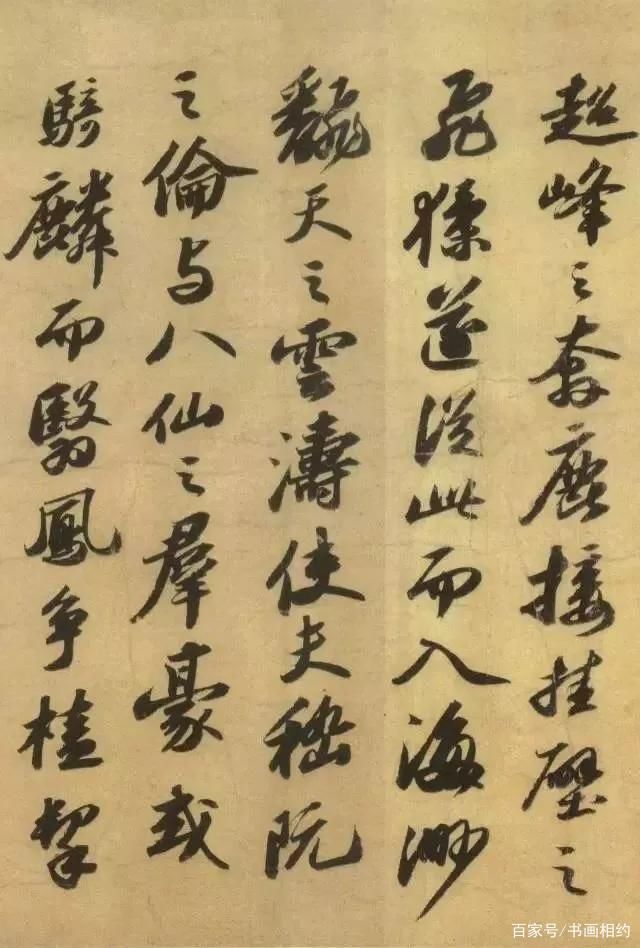 超峰之奔鹿接挂壁之
飛猱遂從此而入海渺
飜天之雲濤使夫嵇阮
之倫与八仙之羣豪或
騎麟而翳鳳争榼挈
百家号/书画相约